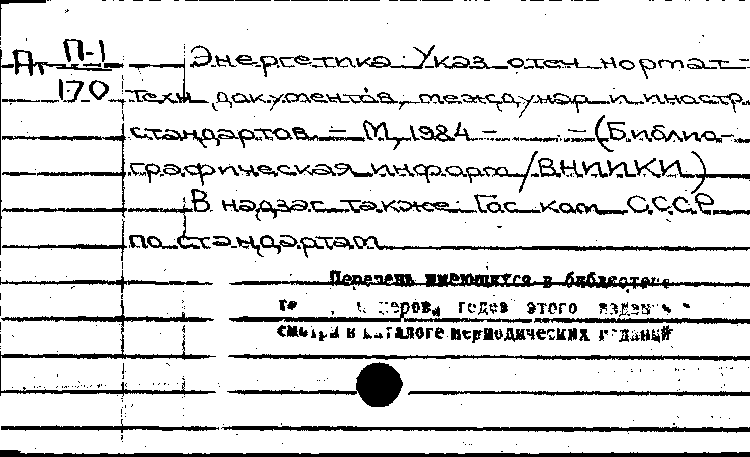 Пт П-1
170
Энергетика: Указ. отеч. нормат.-
техн. документов, междунар и иностр.
стандартов. – М, 1984 – – (Библио-
графическая информ/ВНИИКИ)
В надзаг. также: Гос ком СССР
по стандартам
Перечень имеющихся в библиотеке
номеров, годов этого издания
смотри в каталоге периодических изданий